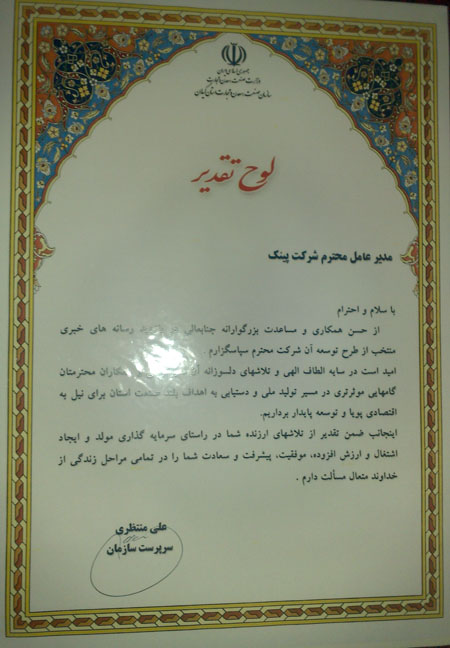 جمهوری اسلامی ایران
وزارت صنعت، معدن و تجارت
سازمان صنعت، معدن و تجارت استان گیلان
لوح تقدیر
مدیر عامل محترم شرکت پینک
با سلام و احترام
از حسن همکاری و مساعدت بزرگوارانه جنابعالی در بازدید رسانه های خبری
منتخب از طرح توسعه آن شرکت محترم سپاسگزارم
امید است در سایه الطاف الهی و تلاشهای دلسوزانه همکاران محترمتان
گامهایی موثرتری در مسیر تولید ملی و دستیابی به اهداف بلند صنعت استان برای نیل به
اقتصادی پویا و توسعه پایدار برداریم.
اینجانب ضمن تقدیر از تلاشهای ارزنده شما در راستای سرمایه گذاری مولد و ایجاد
اشتغال و ارزش افزوده، موفقیت، پیشرفت و سعادت شما را در تمامی مراحل زندگی از
خداوند متعال مسألت دارم .
علی منتظری
سرپرست سازمان